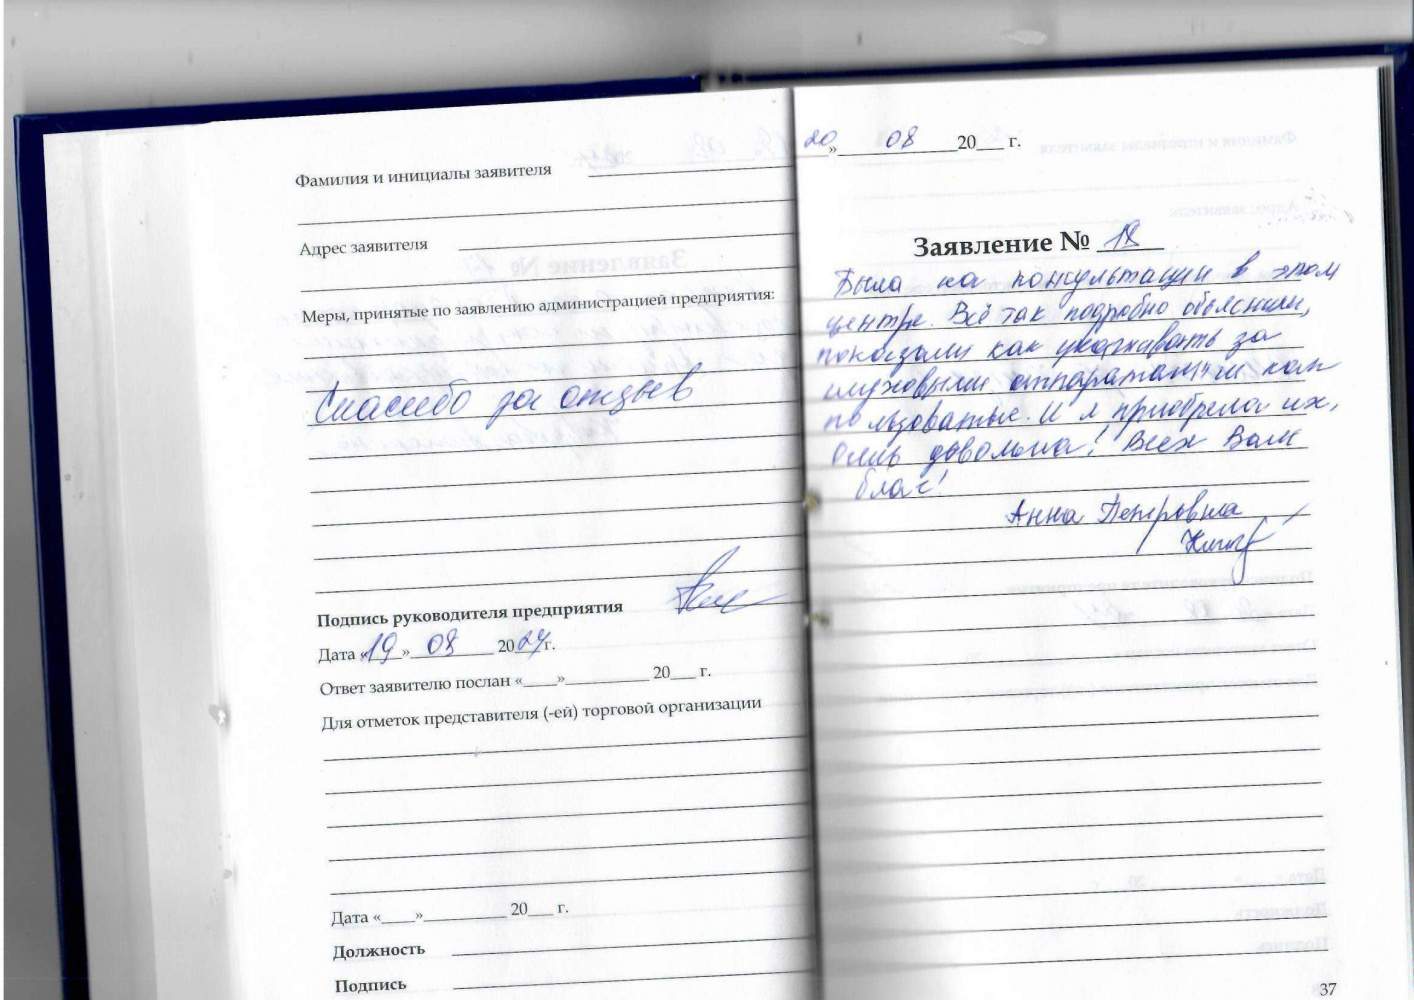 Фамилия и инициалы заявителя
Адрес заявителя
Меры, принятые по заявлению администрацией предприятия:
Спасибо за отзыв
Подпись руководителя предприятия
Дата «19» 08 2024г.
Ответ заявителю послан «____»__________ 20___ г.
Для отметок представителя (-ей) торговой организации
Дата «____»__________ 20___ г.
Должность
Подпись
20» 08 20___ г.
Заявление № 18
Была на консультации в этом
центре. Всё так подробно объяснили,
показали как ухаживать за
слуховыми аппаратами и как
пользоваться. И я приобрела их,
Очень довольна! Всех Вам
благ!
Анна Петровна
37